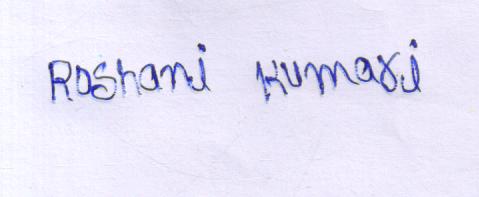 Roshani Kumari